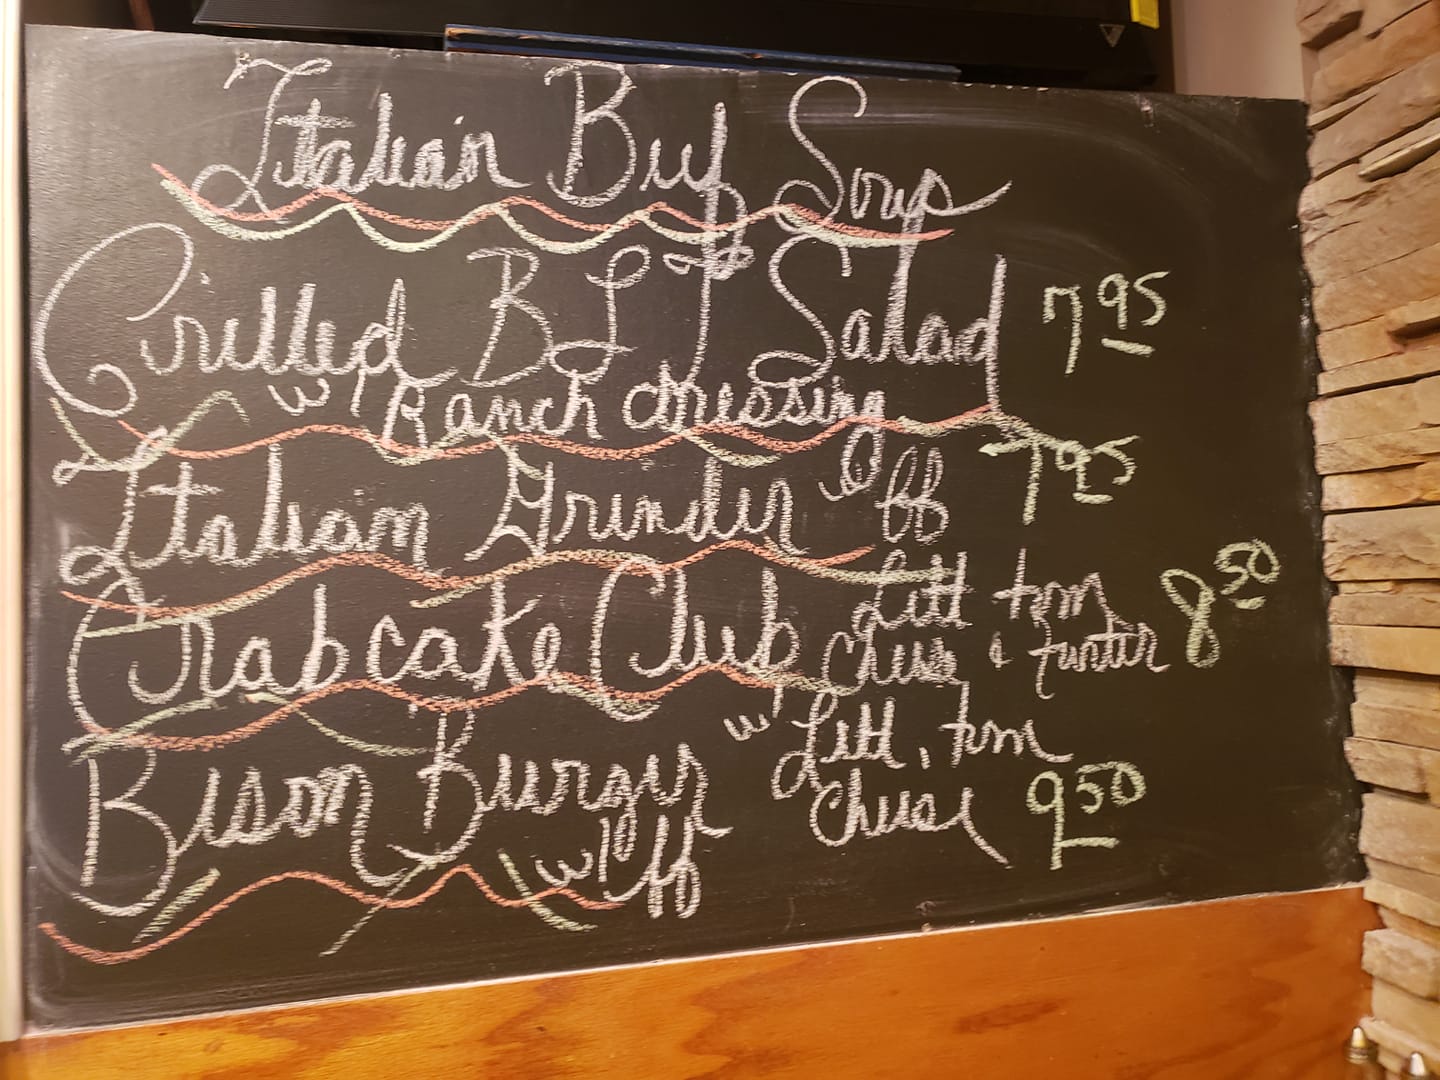 Italian Beef Soup
Grilled BLT Salad 7.95
w/ Ranch dressing
Italian Grinder w/ ff 7.95
Crabcake Club Lett tom
Cheese & 8.50
Bison Burger w/ Lett, tom
w/ ff Cheese 9.50